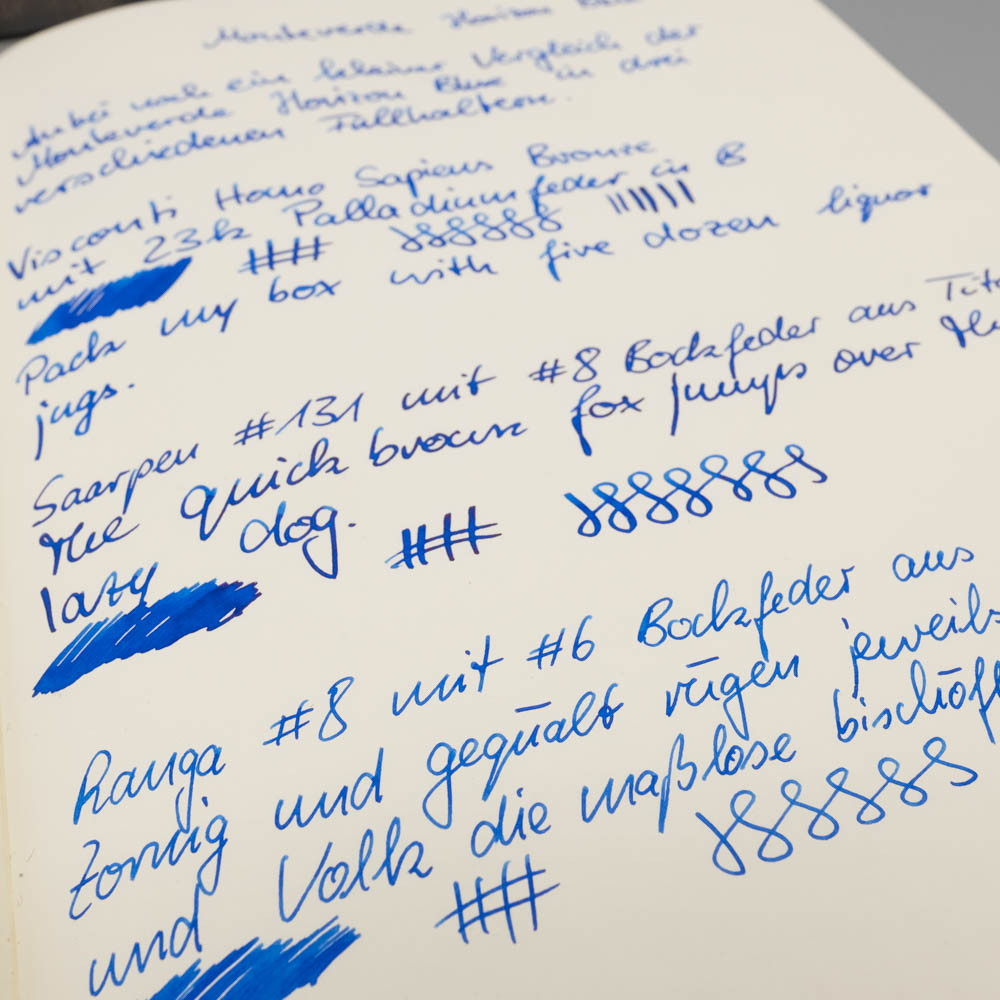 Monteverde Horizon Blue
Anbei noch ein kleiner Vergleich der
Monteverde Horizon Blue in drei
verschiedenen Füllhaltern.
Visconti Homo Sapiens Bronze
mit 23k Palladiumfeder in B
Pack my box with five dozen liquor
jugs.
Saarpen #131 mit #8 Bockfeder aus Tita
the quick brown fox jumps over the
lazy dog.
Ranga #8 mit #6 Bockfeder aus
Zornig und gequält rügen jeweils
und Volk die maßlose bischöfl